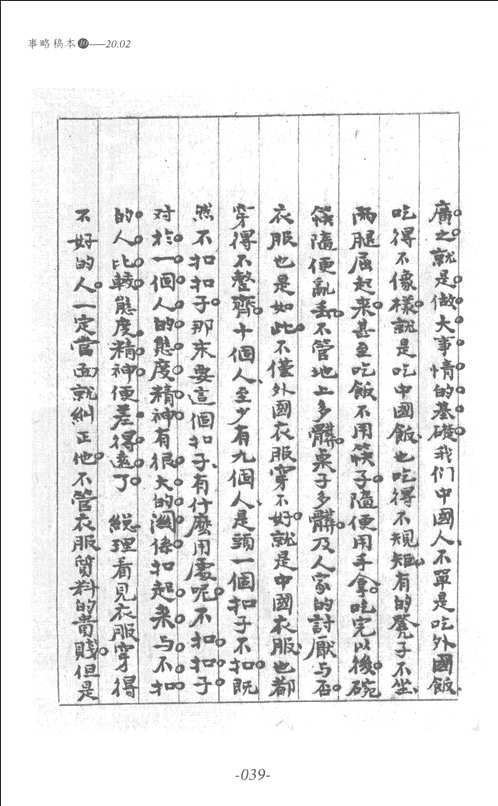 事略稿本⑩——20.02
廣之就是做大事情的基礎我们中國人不單是吃外國飯
吃得不像樣就是吃中國飯也吃得不規矩有的凳子不坐
兩腿屈起來甚至吃飯不用筷子隨便用手拿吃完以後碗
筷隨便亂丢不管地上多髒桌子多髒及人家的討厭与否
衣服也是如此不僅外國衣服穿不好就是中國衣服也都
穿得不整齊十個人至少有九個人是頭一個扣子不扣既
然不扣扣子那末要這個扣子有什麼用處呢不扣扣子
对於一個人的態度精神有很大的関係扣起來与不扣
的人比較態度精神便差得遠了 総理看見衣服穿得
不好的人一定當面就糾正他不管衣服質料的貴賤但是
-039-